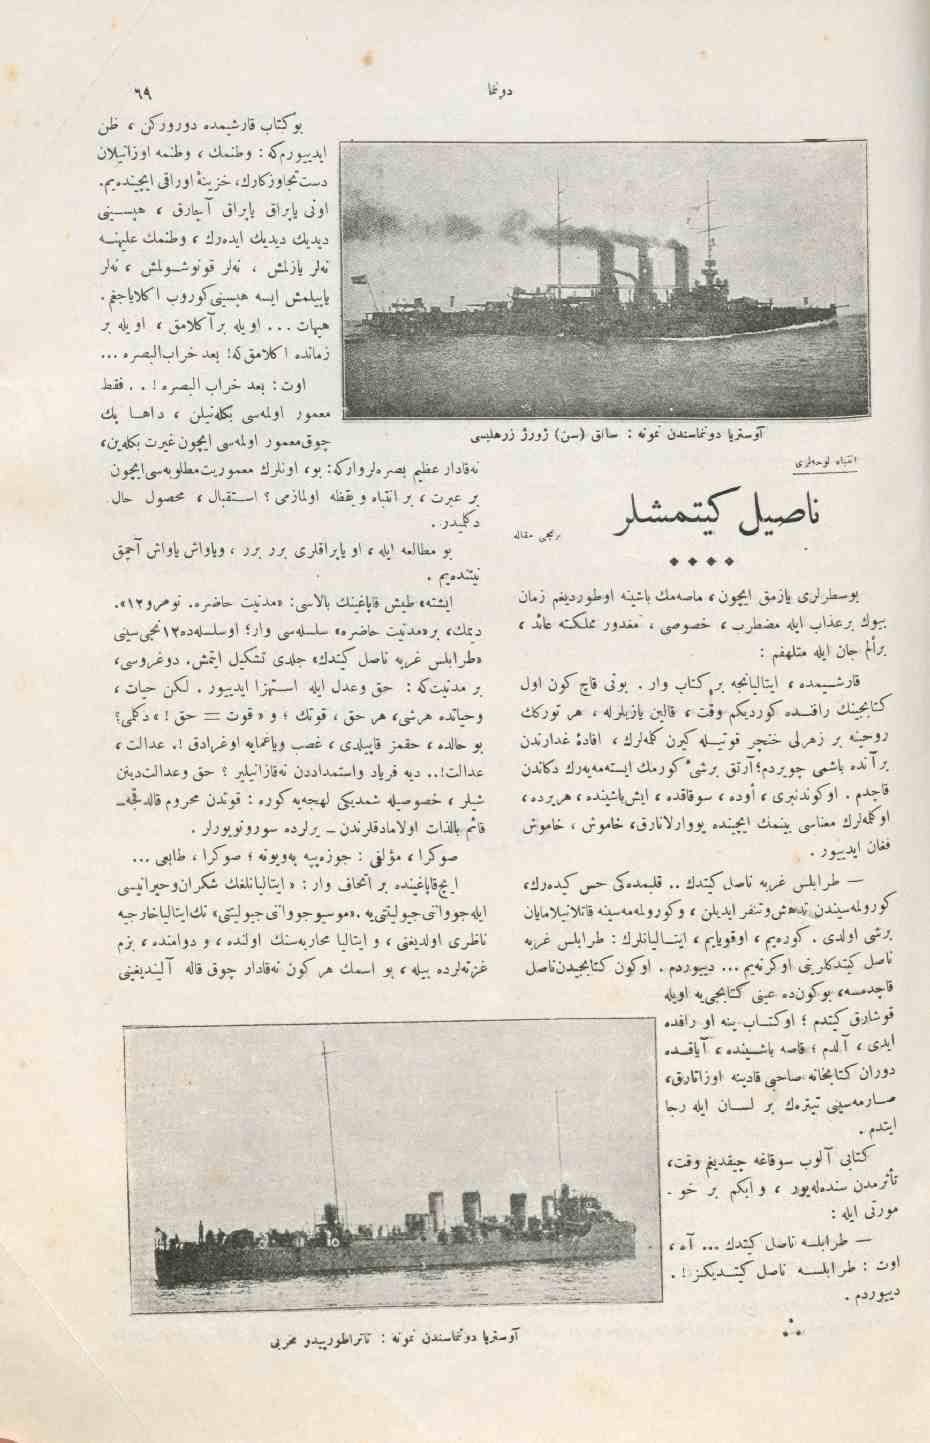 دونما
٦٩
آوستریا دونماسندن نمونه : سانق (سن) ژورژ زرهلیسی
انتباه لوحه‌لری
ناصیل کیتمشلر
برنجی مقاله
بوسطرلری یازمق ایچون، ماصه‌مك باشینه اوطوردیغم زمان
بیوك برعذاب ایله مضطرب ، خصوصی ، مغدور مملکته عائد ،
برألم جان ایله متلهفم :
قارشیمده ، ایتالیانجه بر کتاب وار . بونی قاچ کون اول
کتابجینك رافنده کوردیکم وقت ، قالین یازیلرله ، هر تورکك
روحینه بر زهرلی خنجر قوتیله کیرن کلمه‌لرك ، افادهٔ غدارندن
برآنده باشمی چویردم؛ آرتق برشیٔ کورمك ایسته‌مه‌یه‌رك دکاندن
قاچدم . اوکوندنبری ، أوده ، سوقاقده ، ایش‌باشینده ، هریرده،
اوکلمه‌لرك معناسی بینمك ایچینده یووارلانارق، خاموش ، خاموش
فغان ایدییور .
— طرابلس غربه ناصل کیتدك .. قلبمده‌کی حس کیده‌رك،
کورولمه‌سیندن تدهش وتنفر ایدیلن ، وکورولمه‌مه‌سینه قاتلانیلامایان
برشی اولدی . کوره‌یم ، اوقویایم ، ایتالیانلرك : طرابلس غربه
ناصل کیتدکلرینی اوکرنه‌یم ... دییوردم . اوکون کتابجیدن ناصل
قاچدمسه، بوکون‌ده عینی کتابجی‌یه اویله
قوشارق کیتدم ؛ اوکتاب ینه او رافده
ایدی ، آلدم ؛ قاصه باشینده ، آیاقده
دوران کتابخانه صاحبی قادینه اوزاتارق،
صارمه‌سینی تیتره‌ك بر لسان ایله رجا
ایتدم .
کتابی آلوب سوقاغه چیقدیغم وقت،
تأثرمدن سنده‌له‌یور ، وابکم بر خو .
مورتی ایله :
— طرابلسه ناصل کیتدك ... آه ،
اوت : طرابلسه ناصل کیتدیکز ! .
دییوردم .
بوکتاب قارشیمده دورورکن ، ظن
ایدییورم‌که : وطنمك ، وطنمه اوزانیلان
دست تجاوزکارك، خزینهٔ اوراقی ایچینده‌یم.
اونی یاپراق یاپراق آچارق ، هپسینی
دیدیك دیدیك ایده‌رك ، وطنمك علیهنه
نه‌لر یازلمش ، نه‌لر قونوشولمش ، نه‌لر
یاپیلمش ایسه هپسینی کوروب اکلایاجغم.
هیهات ... اویله برآکلامق ، اویله بر
زمانده اکلامق که! بعد خراب‌البصره ...
اوت : بعد خراب البصره ! .. فقط
معمور اولمه‌سی بکله‌نیلن ، داها پك
چوق معمور اولمه‌سی ایچون غیرت بکله‌ین،
نه‌قادار عظیم بصره‌لروارکه: بو، اونلرك معموریت مطلوبه‌سی ایچون
بر عبرت ، بر انتباه ویقظه اولمازمی ؟ استقبال ، محصول حال
دکلیدر .
بو مطالعه ایله ، او یاپراقلری برر برر ، ویاواش یاواش آچمق
نیتنده‌یم .
ایشته» طیش قاپاغینك بالاسی: «مدنیت حاضره. نومرو١٢».
دیمك، بر «مدنیت حاضره» سلسله‌سی وار؛ اوسلسله‌ده ١٢نجی‌سینی
«طرابلس غربه ناصل کیتدك» جلدی تشکیل ایتمش. دوغروسی،
بر مدنیت‌که : حق وعدل ایله استهزا ایدییور . لکن حیات ،
وحیاتده هرشی، هر حق ، قوتك ؛ و «قوت = حق ! » دکلمی؟
بو حالده ، حقمز قاپیلدی ، غصب ویاغمایه اوغرادق !. عدالت ،
عدالت!.. دیه فریاد واستمداددن نه‌قازانیلیر ؟ حق وعدالت‌دینن
شیلر ، خصوصیله شمدیکی لهجه‌یه کوره : قوتدن محروم قالدقجه–
قائم بالذات اولامادقلرندن – یرلرده سورونویورلر .
صوکرا ، مؤلفی : جوزه‌پیه به‌ویونه ؛ صوکرا ، طابعی ...
ایچ قاپاغینده بر اتحاف وار : « ایتالیانلغك شکران‌وحیرانیسی
ایله جوواننی جیولیتتی‌یه .«موسیو جوواننی جیولیتتی» نك‌ایتالیاخارجیه
ناظری اولدیغنی ، و ایتالیا محاربه‌سنك اولنده ، و دوامنده ، بزم
غزته‌لرده بیله ، بو اسمك هر کون نه‌قادار چوق قاله آلیندیغینی
آوستریا دونماسندن نمونه : تاتراطورپیدو مخربی